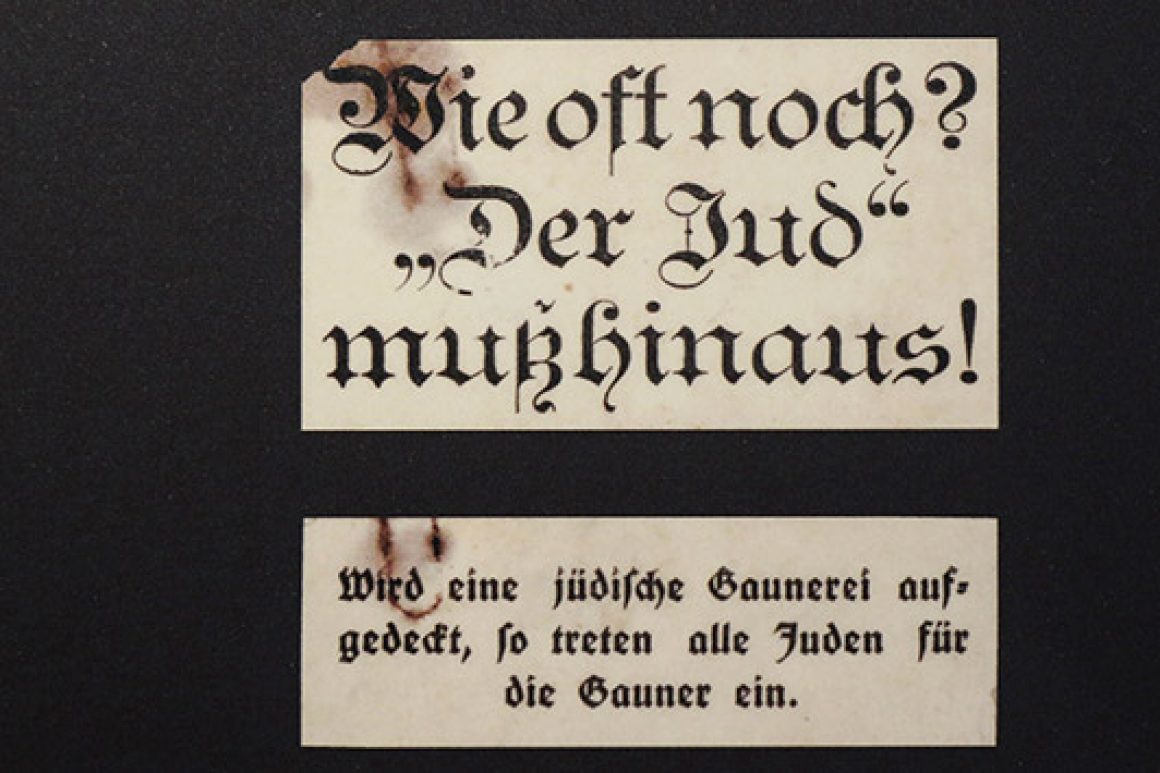 Wie oft noch?
„Der Jud“
muß hinaus!
Wird eine jüdische Gaunerei auf-
gedeckt, so treten alle Juden für
die Gauner ein.